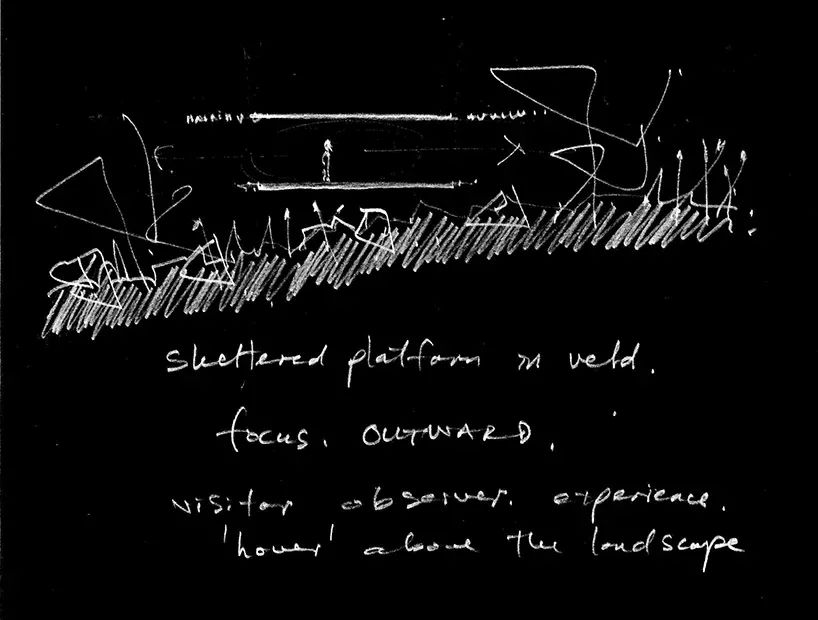 sheltered platform in veld.
focus. OUTWARD.
visitor observer. experience.
'hover' above the landscape